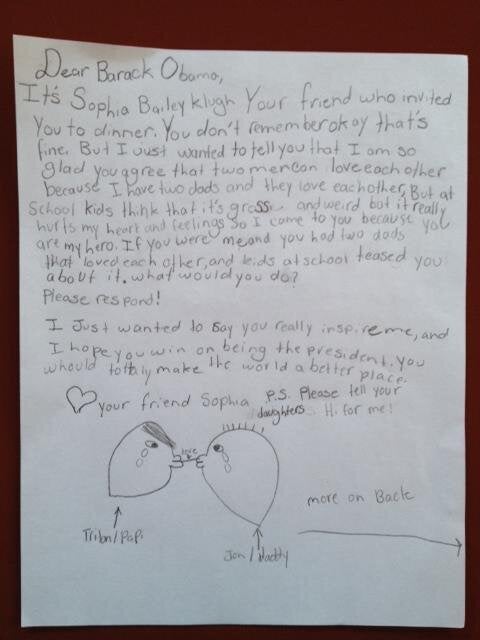 Dear Barack Obama,
It's Sophia Bailey klugh Your friend who invited
You to dinner. You don't remember okay that's
fine. But I Just wanted to tell you that I am so
glad you agree that two men can love each other
because I have two dads and they love each other, But at
School kids think that it's grosse and weird but it really
hurts my heart and feelings So I come to you because you
are my hero. If you were me and you had two dads
that loved each other, and kids at school teased you
about it, what would you do?
Please respond!
I Just wanted to say you really inspire me, and
I hope you win on being the president. You
whould tottaly make the world a better place.
your friend Sophia P.S. Please tell your
daughters Hi for me!
love
more on Back
/Papi
Jon/daddy